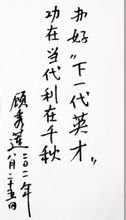 办好“下一代英才”
功在当代利在千秋
顾秀莲 二〇一一年
八月二十五日